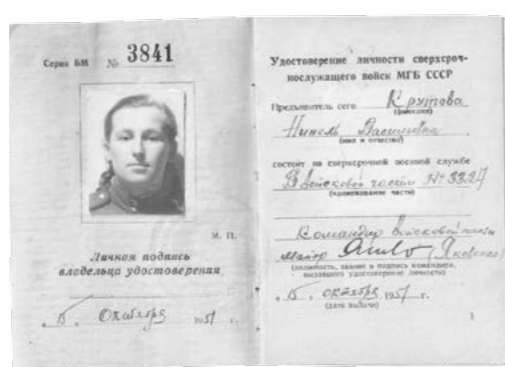 Серия БМ № 3841
М. П.
Личная подпись
владельца удостоверения
15 Октября 1951 г.
Удостоверение личности сверхсроч-
нослужащего войск МГБ СССР
Предъявитель сего Крутова
(фамилия)
Нинель Васильевна
(имя и отчество)
состоит на сверхсрочной военной службе
В Войсковой части № 3327
(наименование части)
Командир Войсковой части
майор
(должность, звание и подпись командира,
выдавшего удостоверение личности)
15 октября 1951 г.
(дата выдачи)
1